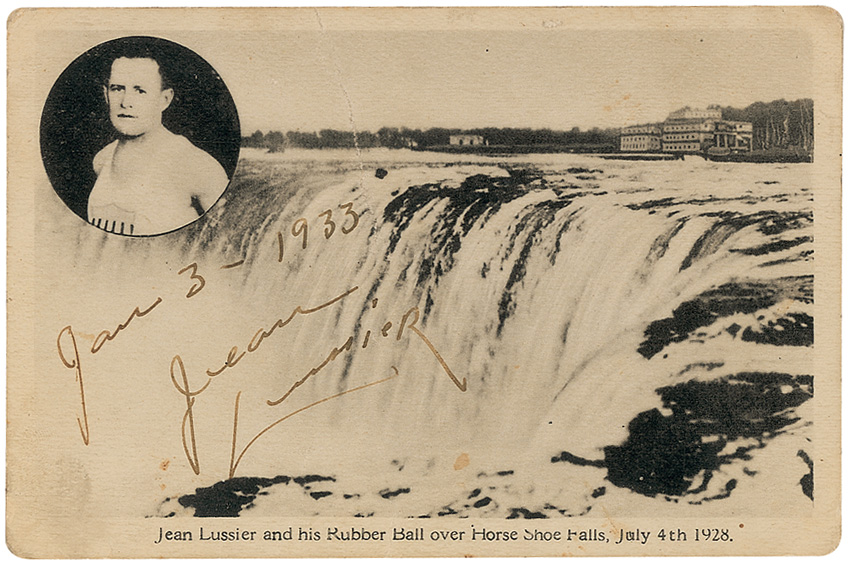 Jan 3 - 1933
Jean
Lussier
Jean Lussier and his Rubber Ball over Horse Shoe Falls, July 4th 1928.